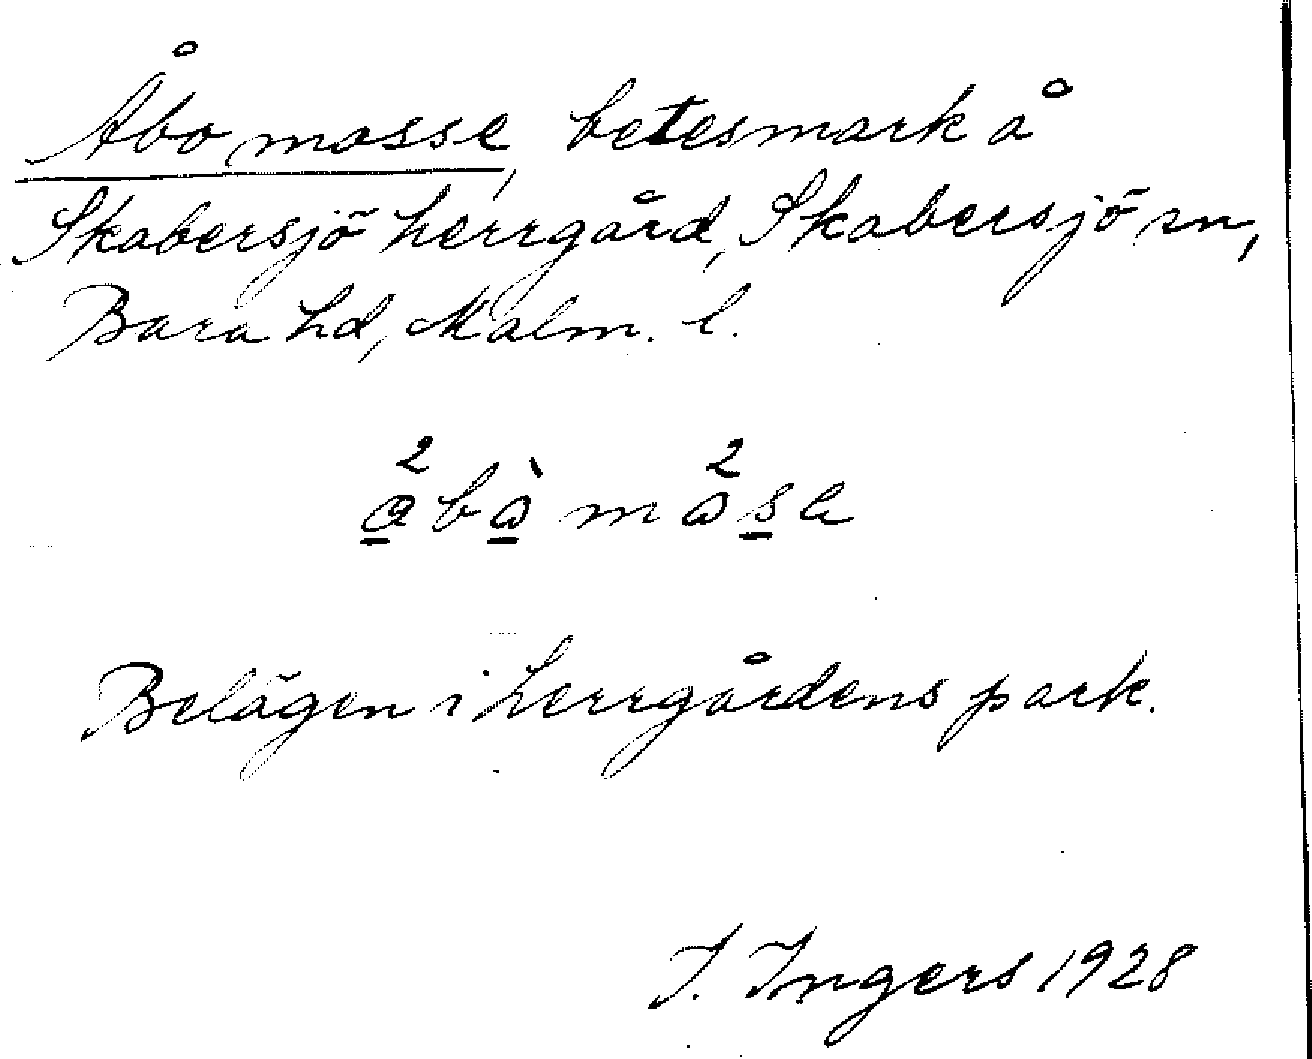 Åbo mosse, betesmark å
Skabersjö herrgård, Skabersjö sn,
Bara hd, Malm. l.
Belägen i herrgårdens park.
I. Ingers 1928